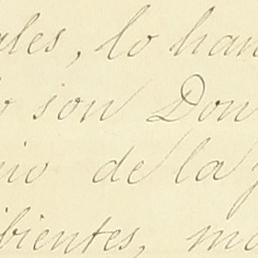 ales, lo han
o son Don
nio de la
ibientes, mo